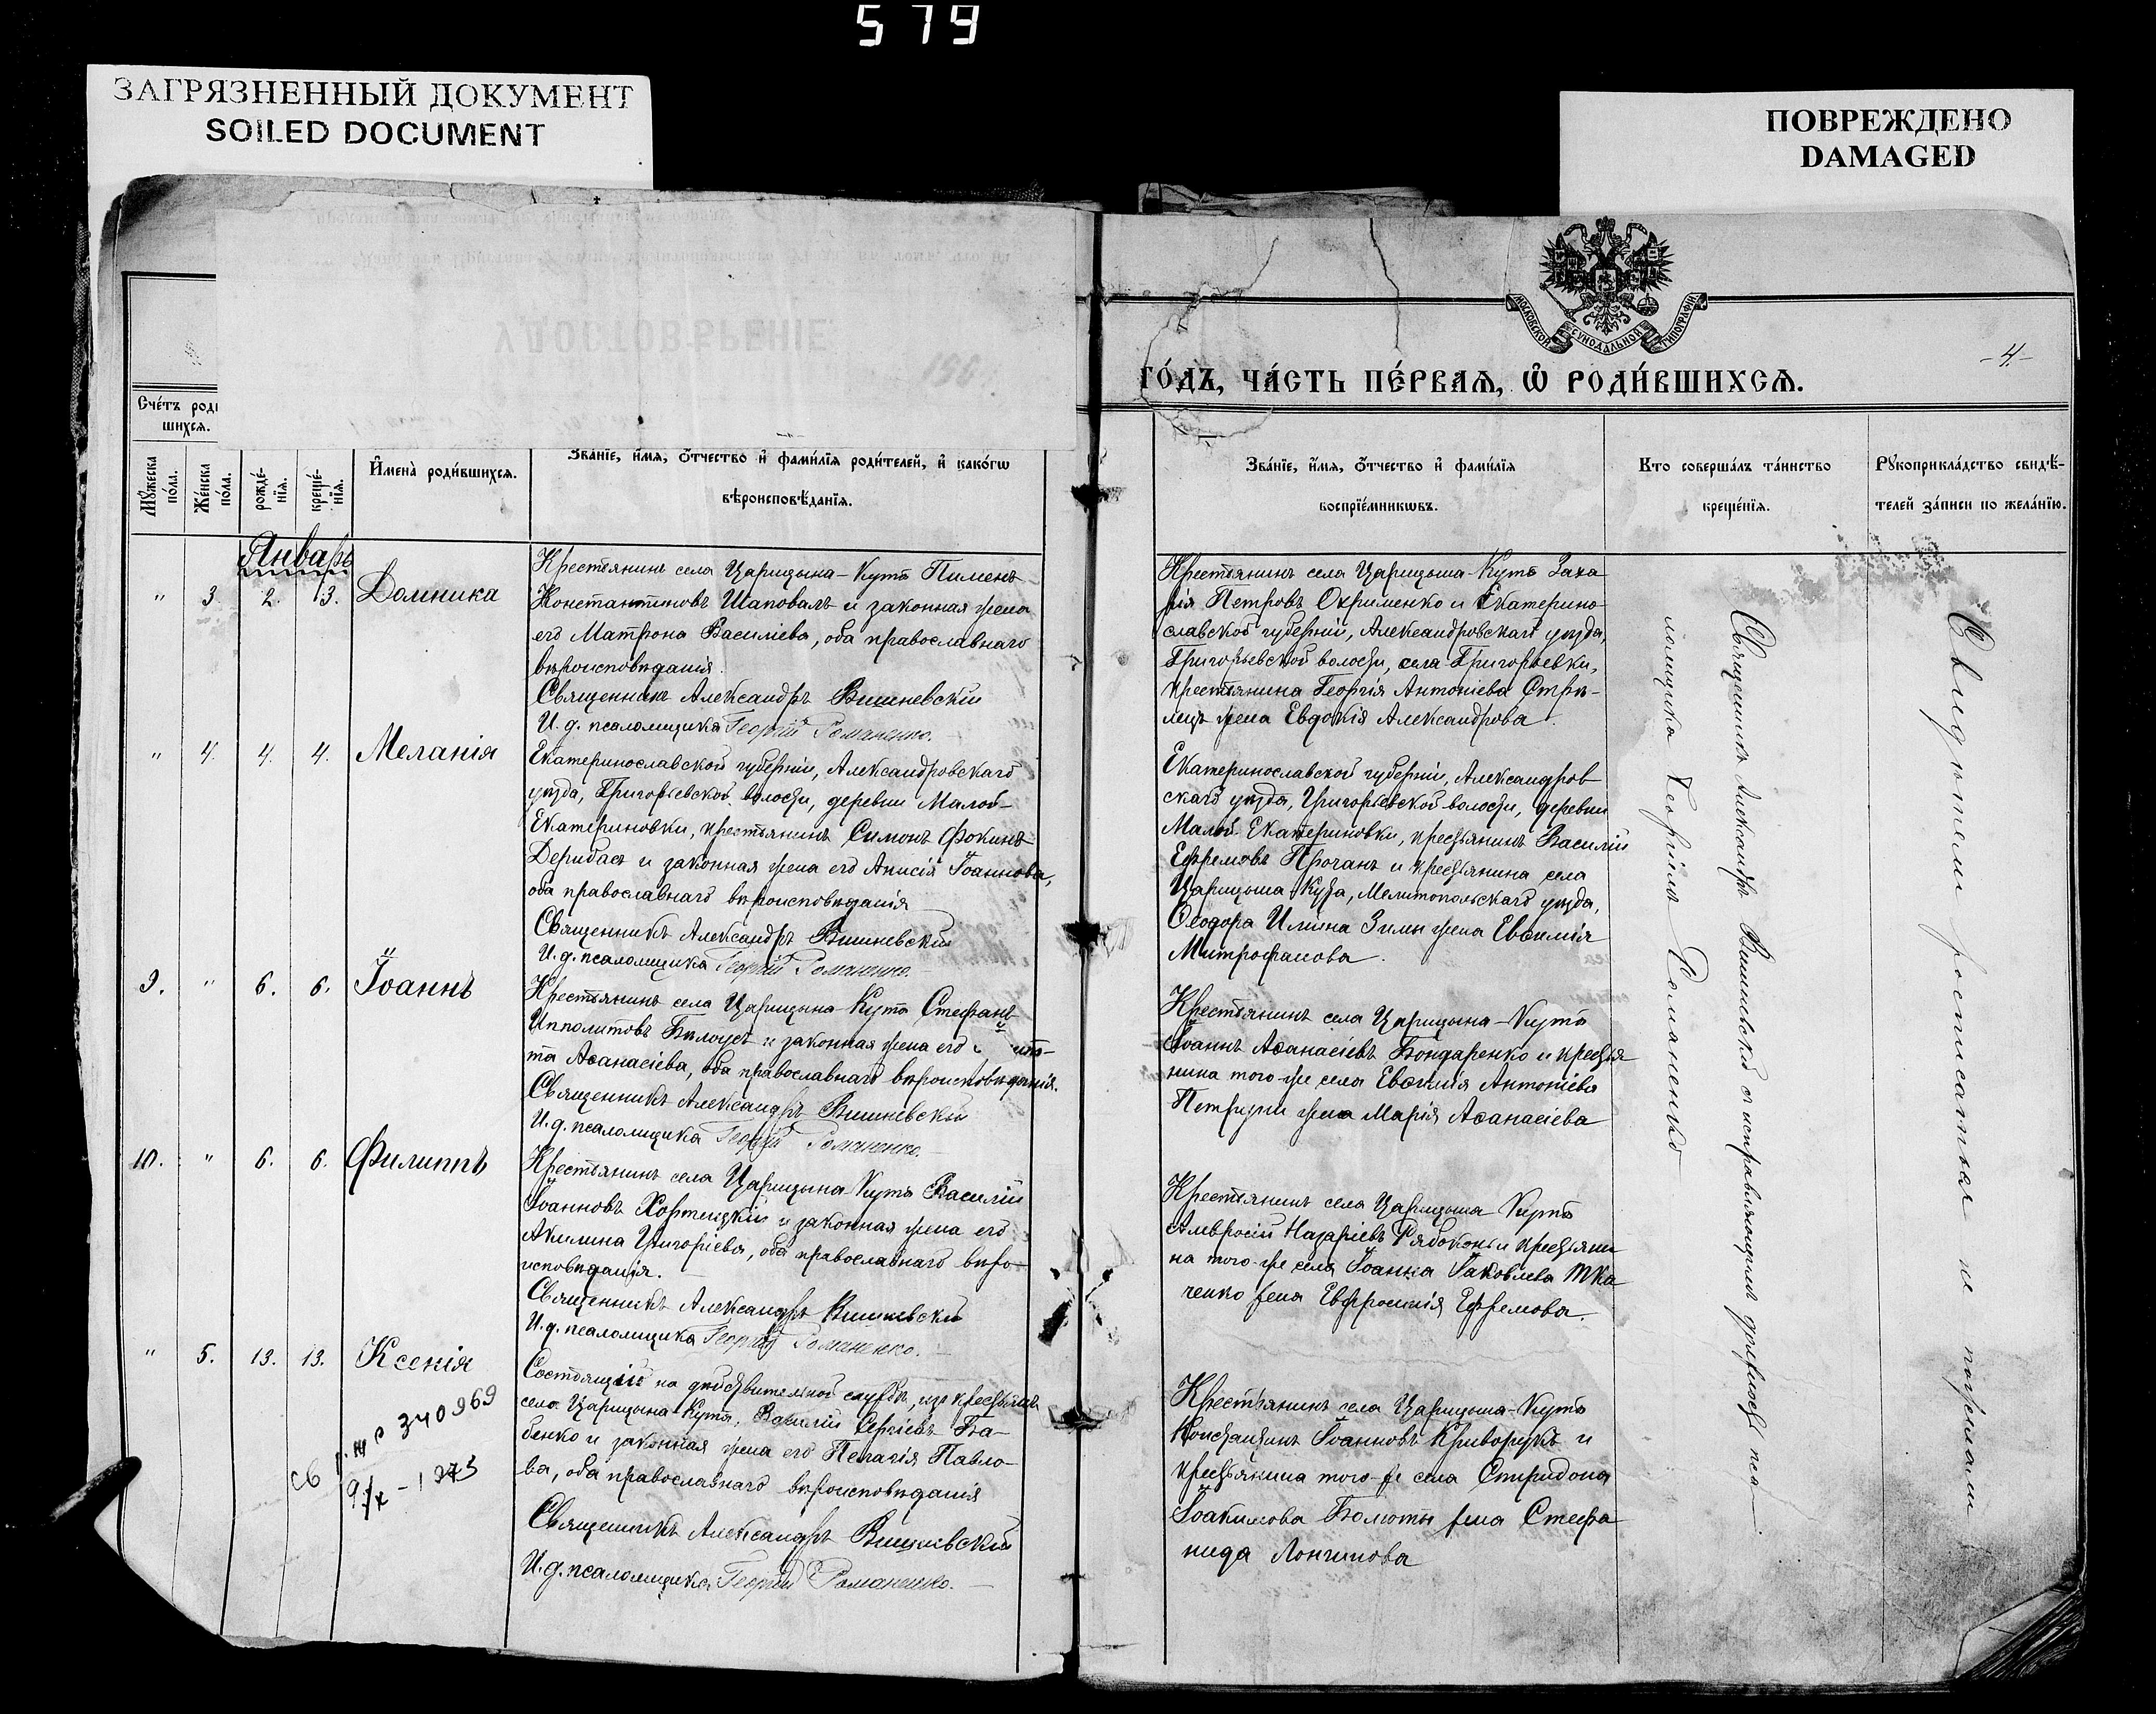 579
ЗАГРЯЗНЕННЫЙ ДОКУМЕНТ
SOILED DOCUMENT
ПОВРЕЖДЕНО
DAMAGED
УДОСТОВѢРЕНІЕ
190
МОСКОВСКОЙ СѴНОДАЛЬНОЙ ТИПОГРАФІИ
-4-
ГО́ДЪ, ЧА́СТЬ ПЕ́РВАѦ, Ѽ РОДИ́ВШИХСѦ.
Сче́тъ роди
шихсѧ.
Мꙋ́жеска по́ла.
Же́нска по́ла.
рожде́нїѧ.
креще́нїѧ.
И҆мена̀ роди́вшихсѧ.
Зва́нїе, и҆́мѧ, ѻ҆́тчество и҆ фами́лїѧ роди́телей, и҆ како́гѡ
вѣроисповѣ́данїѧ.
Зва́нїе, и҆́мѧ, ѻ҆́тчество и҆ фами́лїѧ
воспрїе́мникѡвъ.
Кто соверша́лъ та́инство
креще́нїѧ.
Рꙋкоприкла́дство свидѣ́-
телей за́писи по жела́нїю.
Январь
" 3. 2. 13. Домника
Крестьянинъ села Царицына-Кута Пименъ
Константиновъ Шаповалъ и законная жена
его Матрона Василіева, оба православнаго
вѣроисповѣданія.
Священникъ Александръ Вишневскій
И. д. псаломщика Георгій Романенко.
Крестьянинъ села Царицына-Кута Заха
рія Петровъ Охрименко и Екатерино-
славской губерніи, Александровскаго уѣзда,
Григорьевской волости, села Григорьевки,
крестьянина Георгія Антоніева Стрѣ-
лецъ жена Евдокія Александрова.
" 4. 4. 4. Меланія
Екатеринославской губерніи, Александровскаго
уѣзда, Григорьевской волости, деревни Малой-
Екатериновки, крестьянинъ Симонъ Фокинъ
Дерибасъ и законная жена его Анисія Іоаннова,
оба православнаго вѣроисповѣданія
Священникъ Александръ Вишневскій
И. д. псаломщика Георгій Романенко.
Екатеринославской губерніи, Александров
скаго уѣзда, Григорьевской волости, деревни
Малой-Екатериновки, крестьянинъ Василій
Ефремовъ Прочанъ и крестьянина села
Царицына Кута, Мелитопольскаго уѣзда,
Ѳеодора Ильина Зимы жена Евѳимія
Митрофанова.
9. " 6. 6. Іоаннъ
Крестьянинъ села Царицына-Кута Стефанъ
Ипполитовъ Билоусъ и законная жена его
та Аѳанасіева, оба православнаго вѣроисповѣданія.
Священникъ Александръ Вишневскій
И. д. псаломщика Георгій Романенко.
Крестьянинъ села Царицына-Кута
Іоаннъ Аѳанасіевъ Бондаренко и крестья
нина того-же села Евѳимія Антоніева
жена Марія Аѳанасіева
10. " 6. 6. Филиппъ
Крестьянинъ села Царицына-Кута Василій
Іоанновъ Хортицкій и законная жена его
Акилина Григоріева, оба православнаго вѣро-
исповѣданія.
Священникъ Александръ Вишневскій
И. д. псаломщика Георгій Романенко.
Крестьянинъ села Царицына Кута
Амвросій Назаріевъ Рябоконь и крестьяни
на того-же села Іоанна Іаковлева Тка
ченко жена Евфросинія Ефремова.
" 5. 13. 13. Ксенія
Состоящій на дѣйствительной службѣ, изъ крестьянъ
села Царицына-Кута, Василій Сергіевъ Ба-
бенко и законная жена его Пелагія Павло-
ва, оба православнаго вѣроисповѣданія
Священникъ Александръ Вишневскій
И. д. псаломщика Георгій Романенко.
Крестьянинъ села Царицына-Кута
Константинъ Іоанновъ Криворукъ и
крестьянина того-же села Спиридона
Іоакимова Болюты жена Стефа
нида Лонгинова
340969
Священникъ Александръ Вишневскій съ исправляющимъ должность пса-
ломщика Георгіемъ Романенко
Свидѣтели росписаться не пожелали